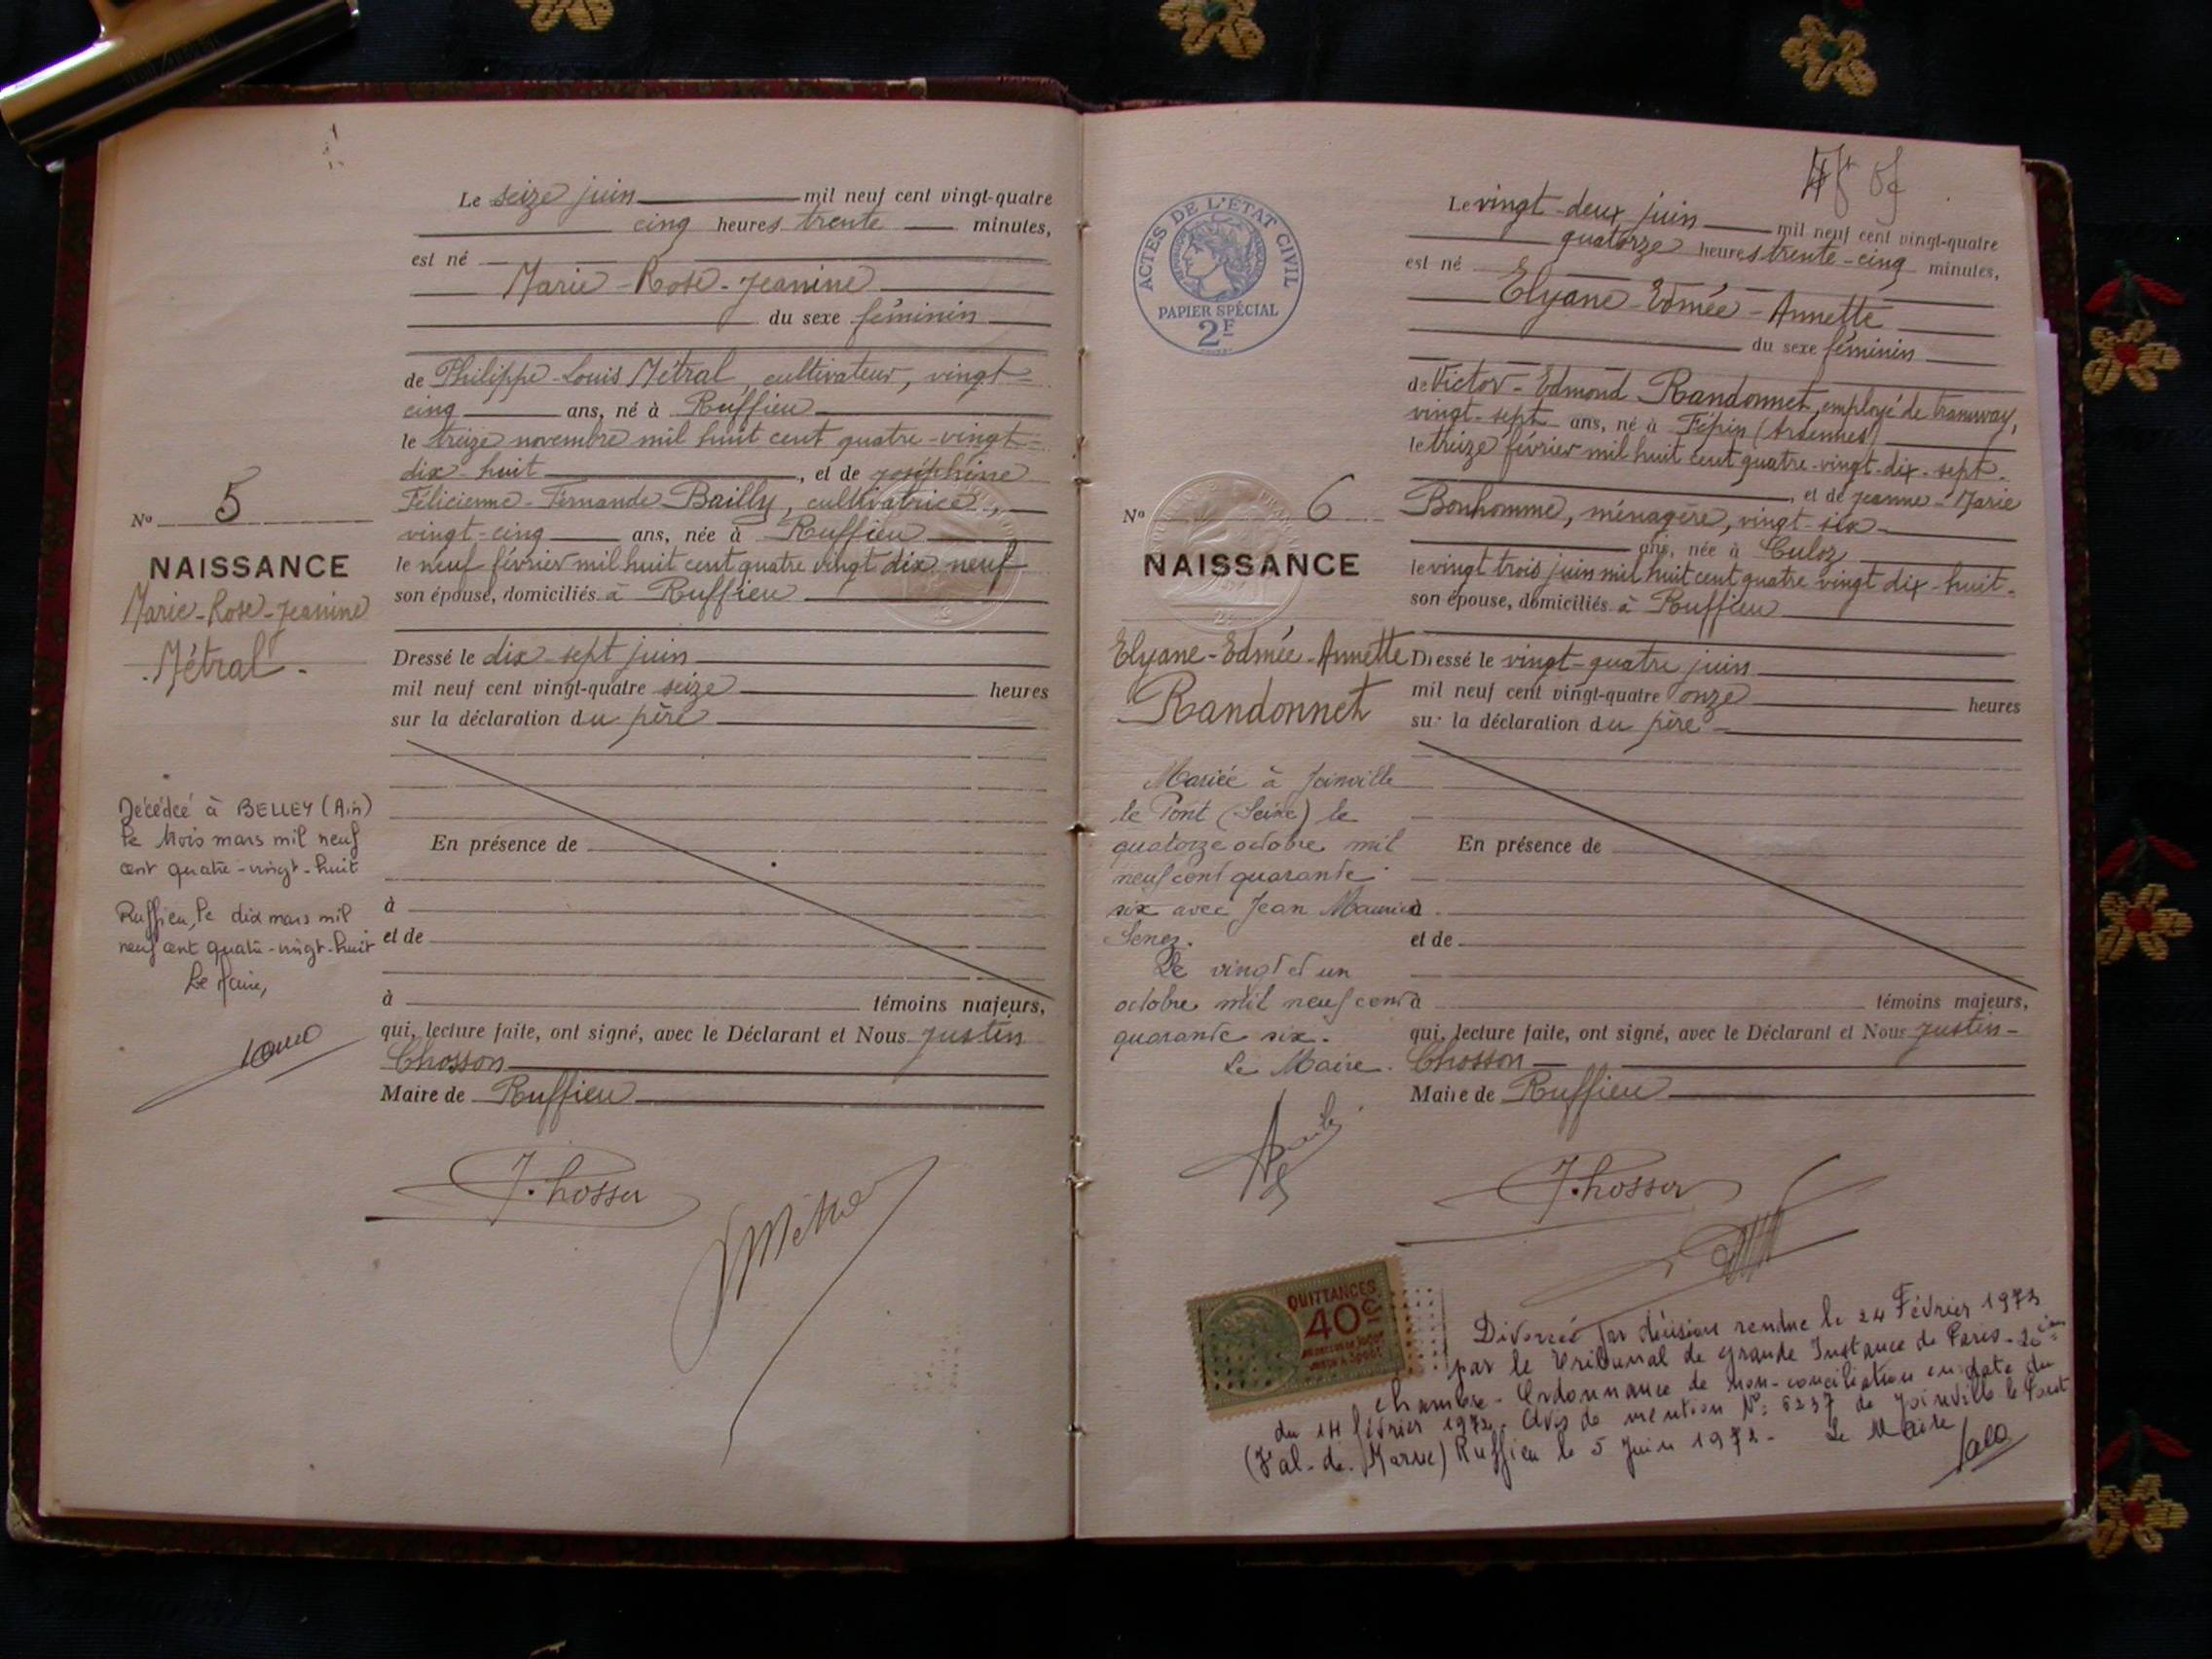 Le seize juin mil neuf cent vingt-quatre
cinq heures trente minutes,
est né
Marie-Rose-Jeanine
du sexe féminin
de Philippe-Louis Métral, cultivateur, vingt-
cinq ans, né à Ruffieu
le treize novembre mil huit cent quatre-vingt-
dix-huit, et de Joséphine
Félicienne-Fernande Bailly, cultivatrice,
vingt-cinq ans, née à Ruffieu
le neuf février mil huit cent quatre vingt dix neuf
son épouse, domiciliés à Ruffieu
Nº 5
NAISSANCE
Marie-Rose-Jeanine
Métral.
Dressé le dix-sept juin
mil neuf cent vingt-quatre seize heures
sur la déclaration du père
Décédée à BELLEY (Ain)
le trois mars mil neuf
cent quatre-vingt-huit
Ruffieu, le dix mars mil
neuf cent quatre-vingt-huit
Le Maire,
En présence de
à
et de
à témoins majeurs,
qui, lecture faite, ont signé, avec le Déclarant et Nous Justin
Chosson
Maire de Ruffieu
ACTES DE L'ÉTAT CIVIL
PAPIER SPÉCIAL
2F
Le vingt-deux juin mil neuf cent vingt-quatre
quatorze heures trente-cinq minutes,
est né
Elyane-Edmée-Annette
du sexe féminin
de Victor-Edmond Randonnet, employé de tramway,
vingt-sept ans, né à Fépin (Ardennes)
le treize février mil huit cent quatre-vingt-dix-sept-
, et de Jeanne-Marie
Bonhomme, ménagère, vingt-six
ans, née à Culoz
le vingt trois juin mil huit cent quatre vingt dix-huit-
son épouse, domiciliés à Ruffieu
Nº 6
NAISSANCE
Elyane-Edmée-Annette
Randonnet
Dressé le vingt-quatre juin
mil neuf cent vingt-quatre onze heures
sur la déclaration du père
Mariée à Joinville
le Pont (Seine) le
quatorze octobre mil
neuf cent quarante
six avec Jean Maurice
Senez.
Le vingt et un
octobre mil neuf cent
quarante six.
Le Maire.
En présence de
à
et de
à témoins majeurs,
qui, lecture faite, ont signé, avec le Déclarant et Nous Justin-
Chosson
Maire de Ruffieu
QUITTANCES
40c
Divorcée par décision rendue le 24 Février 1973
par le Tribunal de grande Instance de Paris-
chambre-Ordonnance de non-conciliation en date du
du 14 février 1972. Avis de mention Nº: 6237 de Joinville le Pont
(Val-de-Marne) Ruffieu le 5 Juin 1973- Le Maire